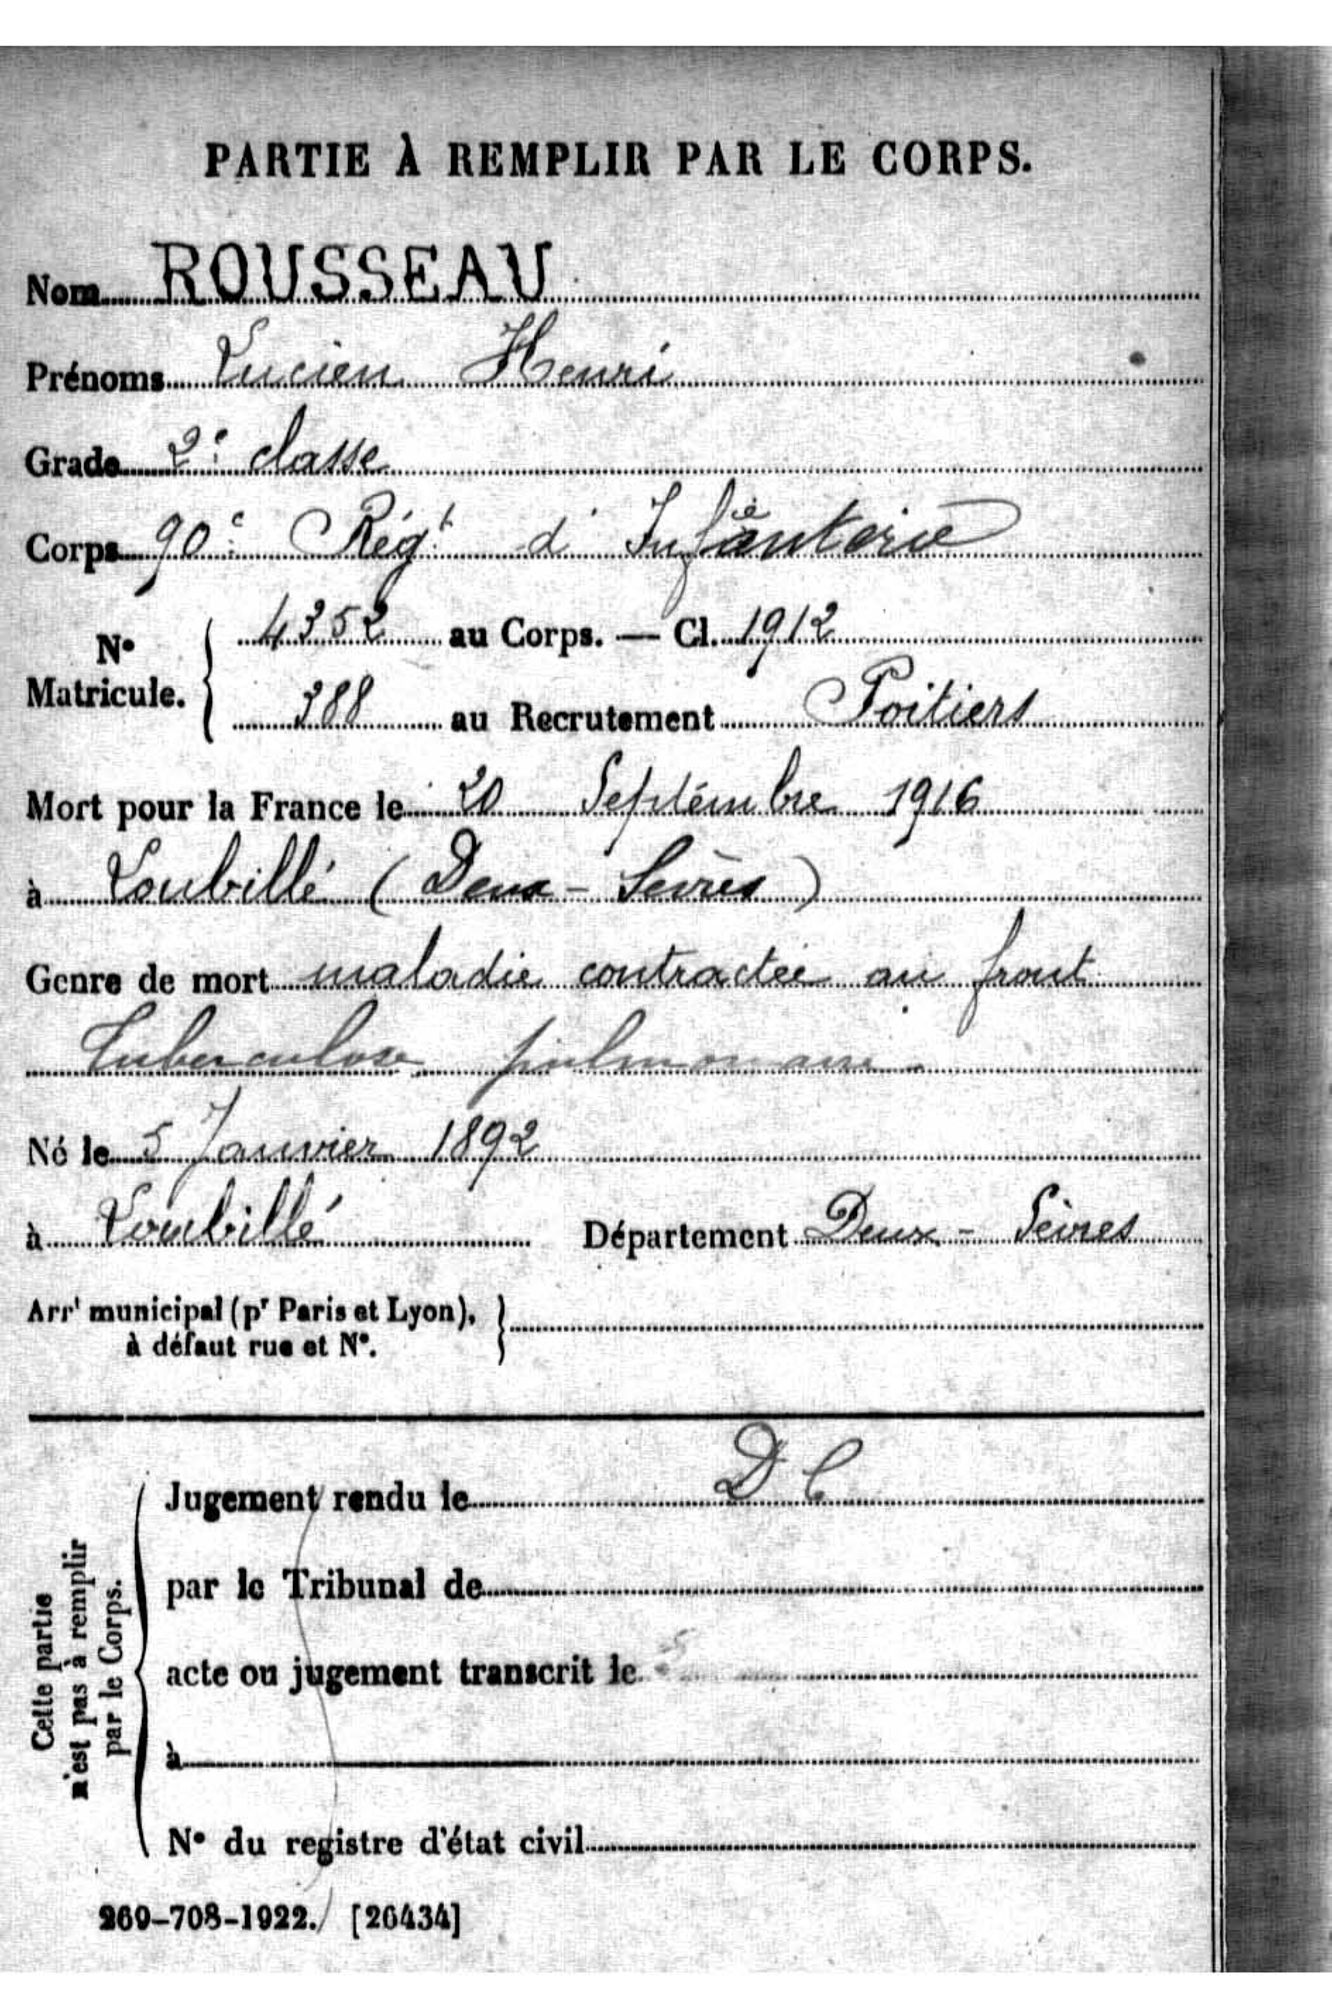 PARTIE À REMPLIR PAR LE CORPS.
Nom ROUSSEAU
Prénoms Lucien Henri
Grade 2e classe
Corps 90e Régt d'Infanterie
No Matricule. 4352 au Corps. — Cl. 1912
388 au Recrutement Poitiers
Mort pour la France le 20 Septembre 1916
à Loubillé (Deux-Sèvres)
Genre de mort maladie contractée au front
Tuberculose pulmonaire
Né le 5 Janvier 1892
à Loubillé Département Deux-Sèvres
Arrt municipal (pr Paris et Lyon),
à défaut rue et No.
Cette partie
n'est pas à remplir
par le Corps.
D C
Jugement rendu le
par le Tribunal de
acte ou jugement transcrit le
à
No du registre d'état civil
269-708-1922. [26434]